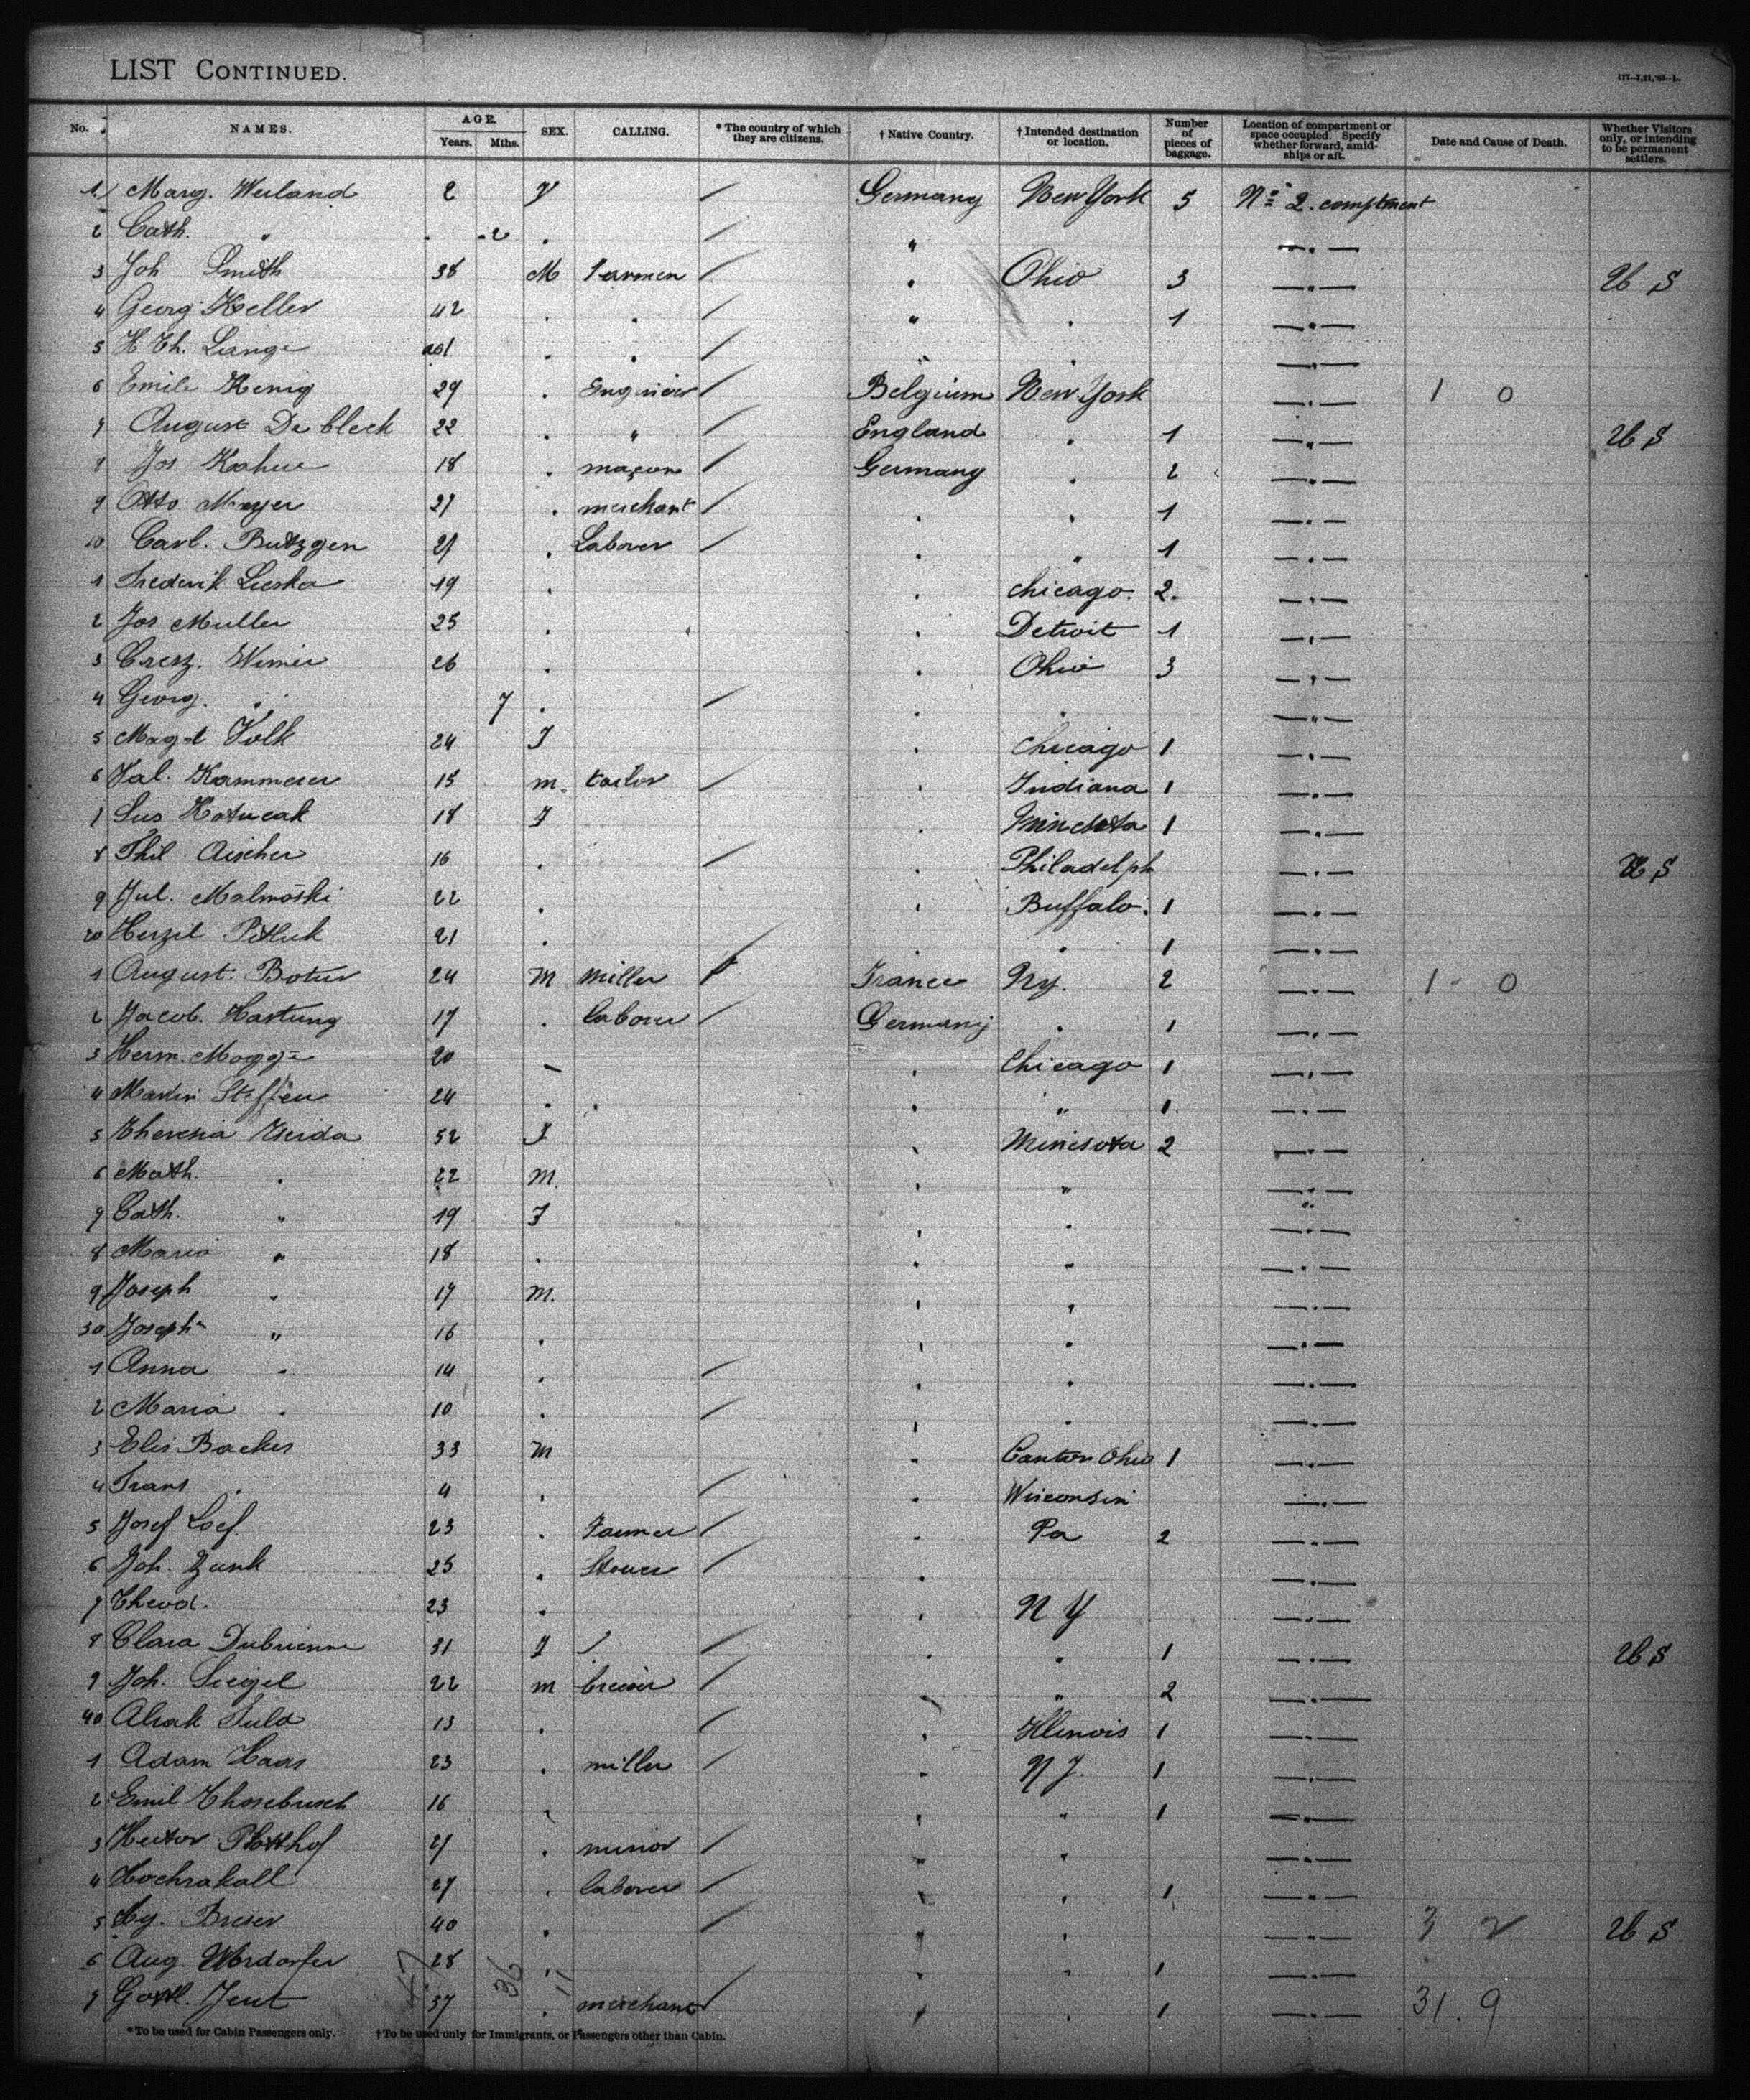 LIST CONTINUED.
No. NAMES. AGE. Years. Mths. SEX. CALLING. * The country of which they are citizens. † Native Country. † Intended destination or location. Number of pieces of baggage. Location of compartment or space occupied. Specify whether forward, amidships or aft. Date and Cause of Death. Whether Visitors only, or intending to be permanent settlers.
1 Marg. Weiland 2 F / Germany New York 5 No 2. comptment
2 Cath. " 2 . / " —"—
3 Joh Smith 38 M farmer / " Ohio 3 —"— US
4 Georg Keller 42 . . / " . 1 —"—
5 H Th. Lange . . / " . —"—
6 Emile Kenig 29 . Engineer / Belgium New York —"— 1 0
7 August De bleck 22 . " / England . 1 —"— US
8 Jos 18 . maçon / Germany . 2 —"—
9 Otto Mayer 27 . merchant / . . 1 —"—
10 Carl. Butzgen 27 . Laborer / . " 1 —"—
1 Frederik Lieska 19 . . chicago. 2. —"—
2 Jos Muller 25 . . Detroit 1 —"—
3 Cresz. Werner 26 . . Ohio 3 —"—
4 Georg. " 7 . / . . —"—
5 Magd Volk 24 F . Chicago 1 —"—
6 Val. Kammerer 15 m. tailor / . Indiana 1 —"—
7 Sus Hatucak 18 F . 1 —"—
8 Phil Aischer 16 . / . Philadelph —"— US
9 Jul. Malmoski 22 . . Buffalo. 1 —"—
20 Herzel Petluk 21 . / . . 1 —"—
1 August. Botur 24 M Miller / France Ny. 2 —"— 1 0
2 Jacob. Hartung 17 . laborer / Germany . 1 —"—
3 Herm. Magge 20 — . Chicago 1 —"—
4 Martin Steffen 24 . . . " 1 —"—
5 Theresia 52 F . Minesota 2 —"—
6 Math. . 22 M. . " —"—
7 Cath. " 19 F . . —"—
8 Maria " 18 . . " —"—
9 Joseph . 17 M. . . —"—
30 Joseph " 16 . . . —"—
1 Anna . 14 . / . . —"—
2 Maria . 10 . / . . —"—
3 Elis Backes 33 M . Canton Ohio 1 —"—
4 Frans . 4 . / . Wisconsin —"—
5 Josef Loef. 23 . Farmer / . Pa 2 —"—
6 Joh. Zunk 25 . / . —"—
7 Theod. 23 . . N Y —"—
8 Clara Dubrienne 31 F / / . . 1 —"— US
9 Joh. Siegel 22 m brewer / . " 2 —"—
40 Fuld 13 . / . Illinois 1 —"—
1 Adam Haas 23 . miller / . N J. 1 —"—
2 Emil Thosebusch 16 . . " 1 —"—
3 Potthof 27 . minor / . . —"—
4 Hochrakall 27 . laborer / . . 1 —"—
5 Hy. Breser 40 . / . . —"— 3 2 US
6 Aug. 28 . . . 1 —"—
7 Gottl. Jent 37 . merchant / . . 1 —"— 31. 9
47 36 11
*To be used for Cabin Passengers only. †To be used only for Immigrants, or Passengers other than Cabin.